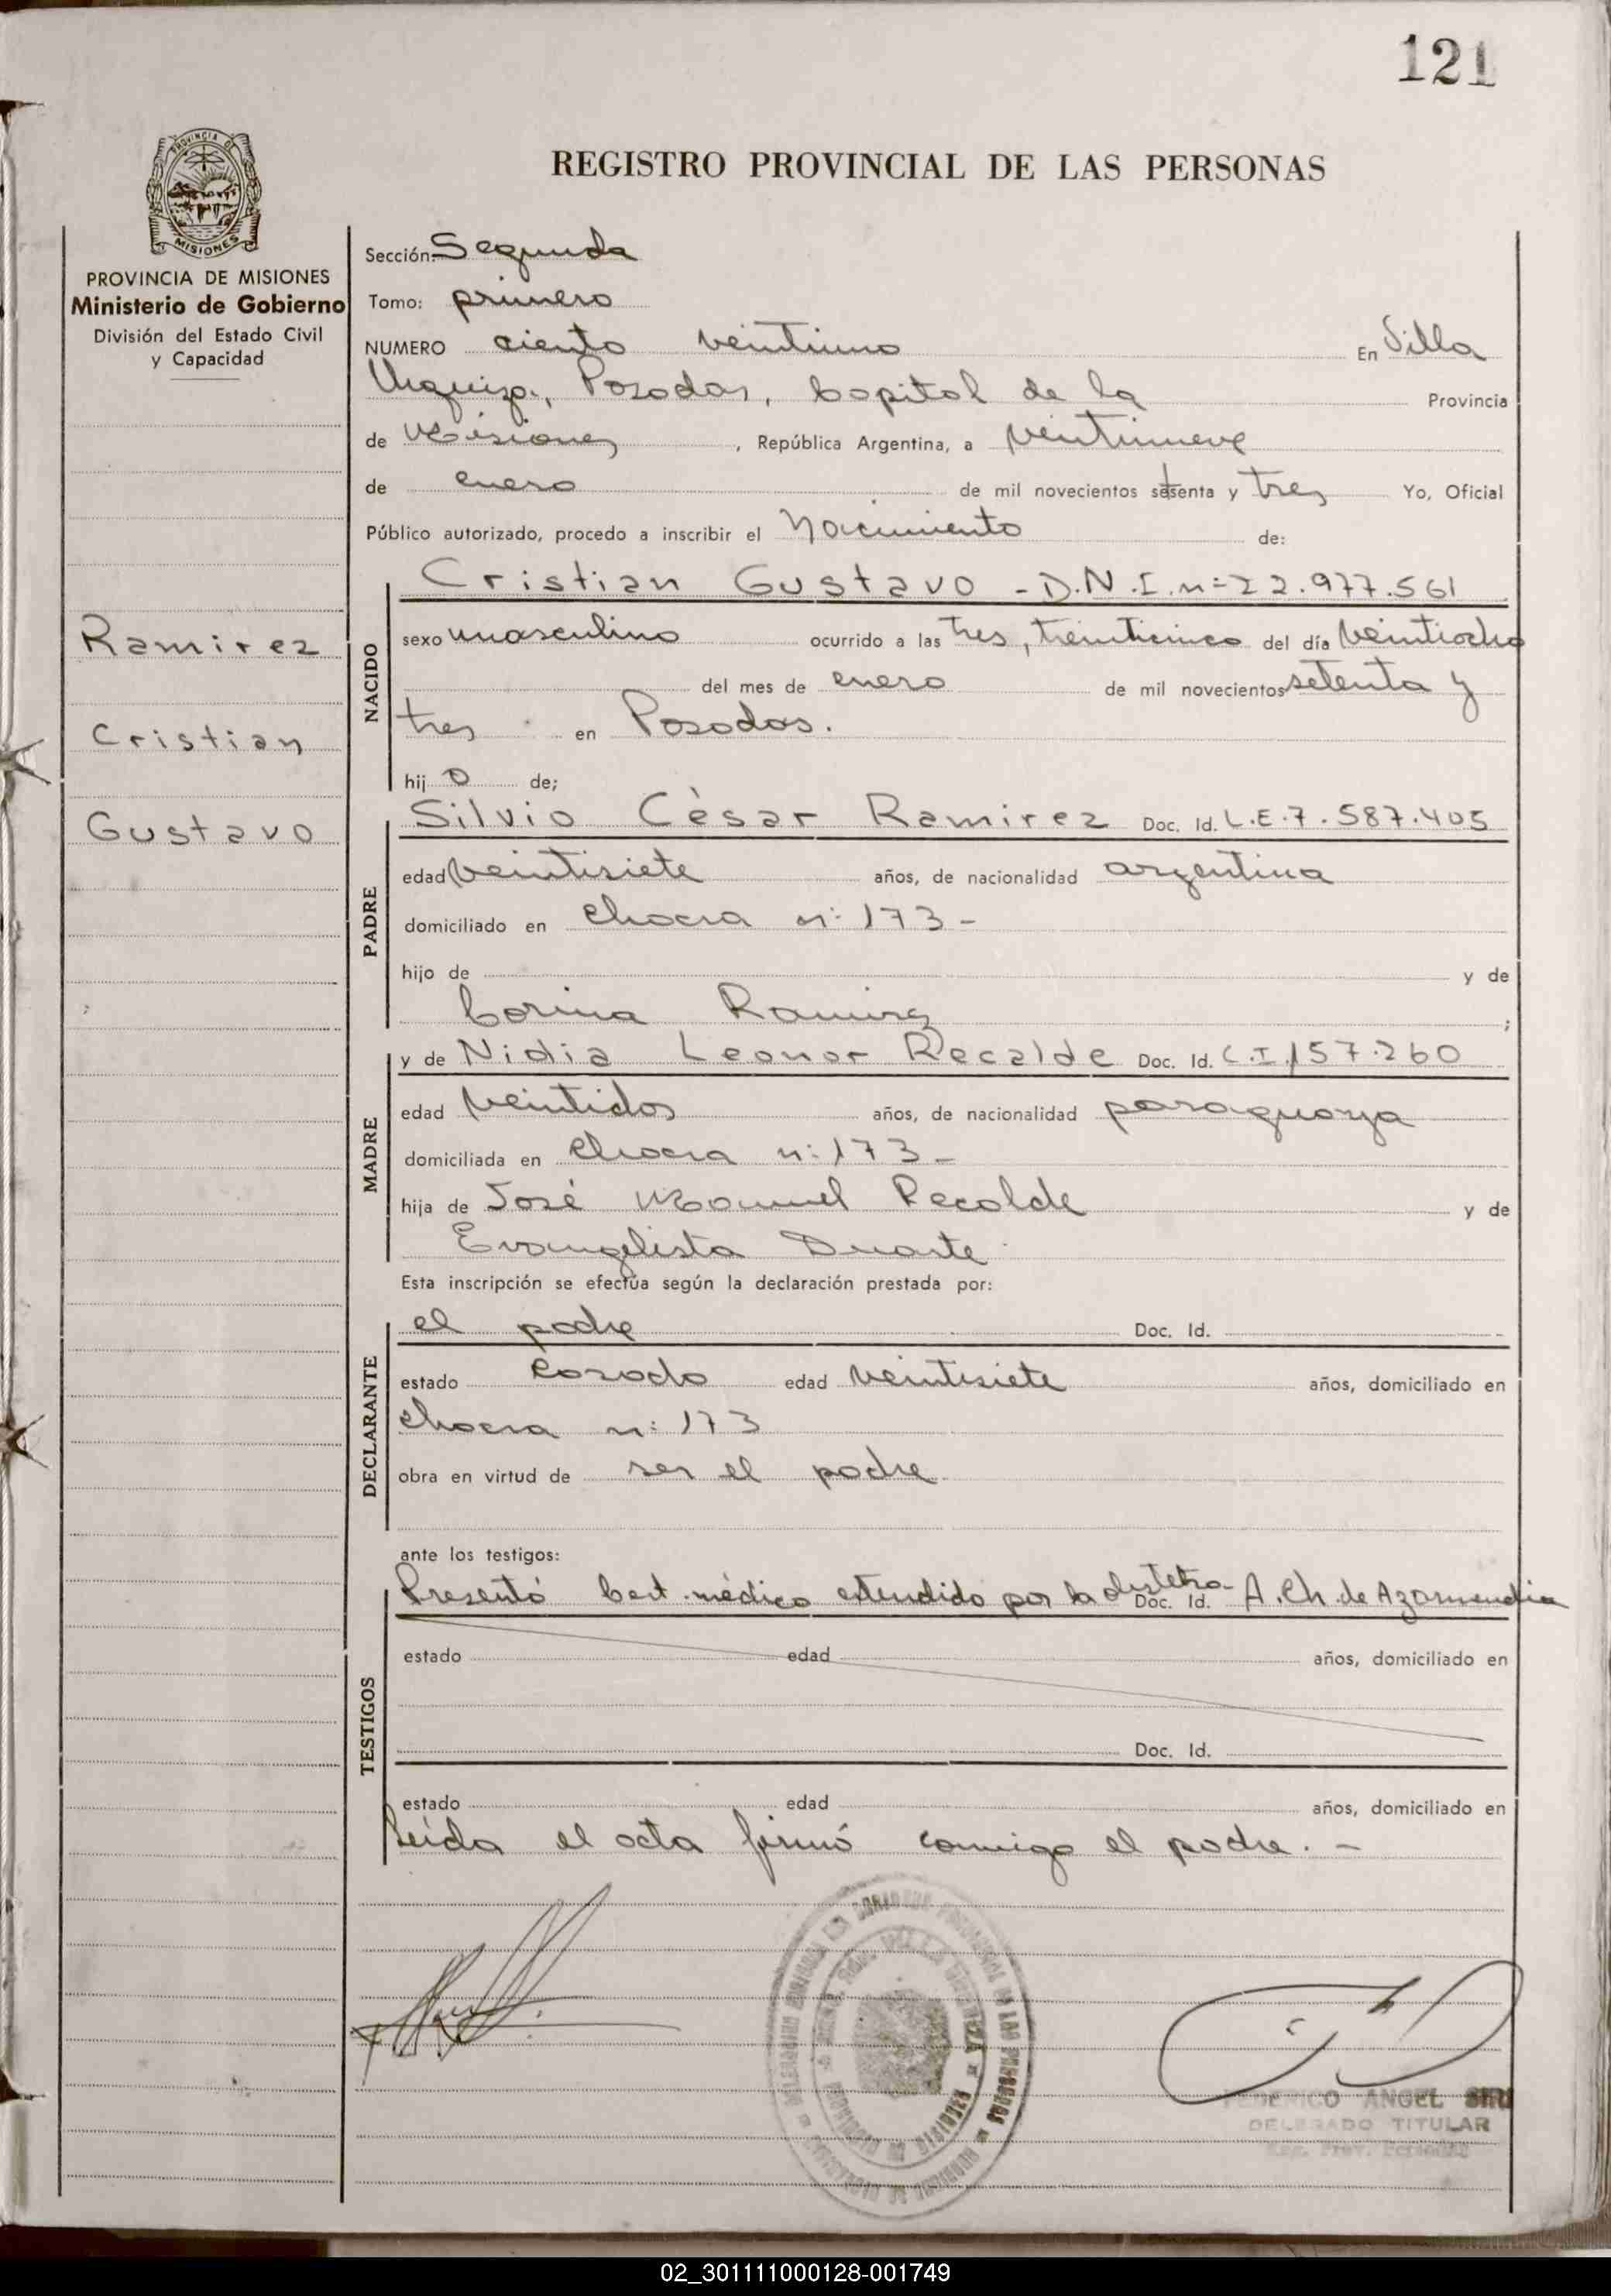 121
REGISTRO PROVINCIAL DE LAS PERSONAS
PROVINCIA DE
MISIONES
PROVINCIA DE MISIONES
Ministerio de Gobierno
División del Estado Civil
y Capacidad
Ramirez
Cristian
Gustavo
Sección: Segunda
Tomo: primero
NUMERO ciento veintiuno En Villa
Urquiza, Posadas, Capital de la Provincia
de Misiones, República Argentina, a veintinueve
de enero de mil novecientos setenta y tres Yo, Oficial
Público autorizado, procedo a inscribir el Nacimiento de:
NACIDO
Cristian Gustavo - D.N.I. nº 22.977.561
sexo masculino ocurrido a las tres, treinticinco del día veintiocho
del mes de enero de mil novecientos setenta y
tres en Posadas.
hijo de;
PADRE
Silvio Cèsar Ramirez Doc. Id. L.E.7.587.405
edad veintisiete años, de nacionalidad argentina
domiciliado en chacra nº 173 -
hijo de y de
Corina Ramirez ;
MADRE
y de Nidia Leonor Recalde Doc. Id. C.I. 157.260
edad veintidos años, de nacionalidad paraguaya
domiciliada en chacra nº 173 -
hija de José Manuel Recalde y de
Evangelista Duarte
Esta inscripción se efectúa según la declaración prestada por:
DECLARANTE
el padre Doc. Id.
estado casado edad veintisiete años, domiciliado en
chacra nº 173
obra en virtud de ser el padre
ante los testigos:
TESTIGOS
Presentó Cert. médico extendido por la obstetra Doc. Id. A. Ch. de Azamendia
estado edad años, domiciliado en
Doc. Id.
estado edad años, domiciliado en
Leída el acta firmó conmigo el padre. -
FEDERICO ANGEL SIRI
DELEGADO TITULAR
02_301111000128-001749